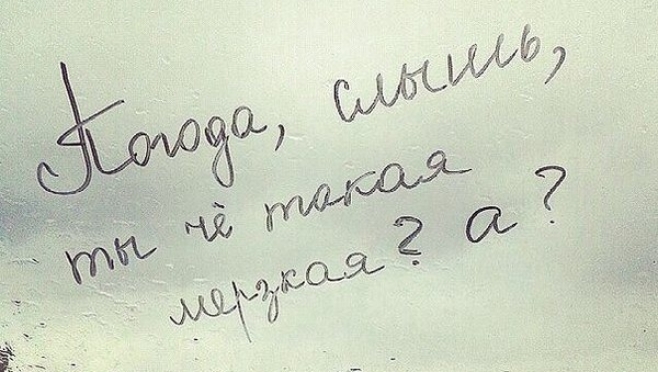 Погода, слышь,
ты чё такая
мерзкая? а?